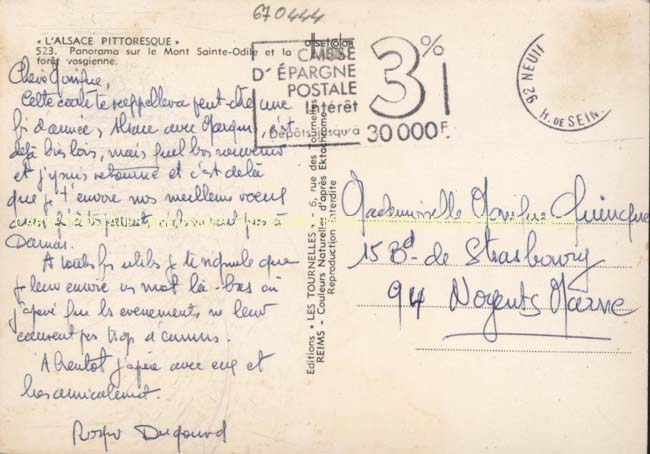 670444
« L'ALSACE PITTORESQUE »
523. Panorama sur le Mont Sainte-Odile et la
forêt vosgienne.
OFSETCOLOR
CAISSE
D'ÉPARGNE
POSTALE
Intérêt
Dépôts jusqu'à
3%
30 000 F.
92 NEUI
H. DE SEIN
Cette carte te rappellera peut-être une
fin d'année, Alsace avec
déjà bien loin, mais quel bon souvenir
et j'y suis retourné et c'est de là
que je t'envoie nos meilleurs vœux
Damas.
A toutes fins utiles je te signale que
je leur envoie un mot là-bas où
j'espère que les evenements ne leur
causent pas trop d'ennuis.
A bientot j'espère avec eux et
bien amicalement.
Roger
Editions « LES TOURNELLES » - 6, rue des Tournelles
REIMS - Couleurs Naturelles d'après Ektachrome
Reproduction interdite
Mademoiselle
15 Bd de Strasbourg
94 Nogent s/ Marne